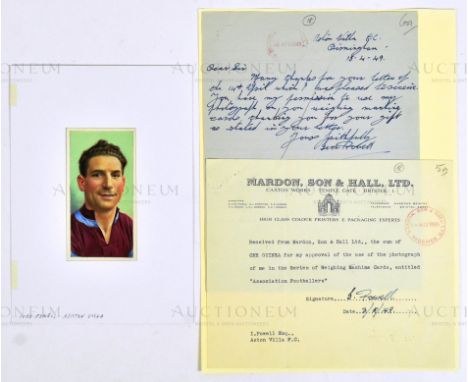 Aston Villa F.C.
Birmingham
18-4-49.
Dear Sir
Many thanks for your letter of
the 14th April which I was pleased to receive.
You have my permission to use my
photograph on your weighing machine
cards, thanking you for your gift
as stated in your letter.
Yours faithfully
Powell
MARDON, SON & HALL, LTD.
CAXTON WORKS TEMPLE GATE BRISTOL
HIGH CLASS COLOUR PRINTERS & PACKAGING EXPERTS
Received from Mardon, Son & Hall Ltd., the sum of
ONE GUINEA for my approval of the use of the photograph
of me in the Series of Weighing Machine Cards, entitled
"Association Footballers"
Signature. I. Powell
Date.
I. Powell Esq.,
Aston Villa F.C.
IVOR POWELL ASTON VILLA
AUCTIONEUM